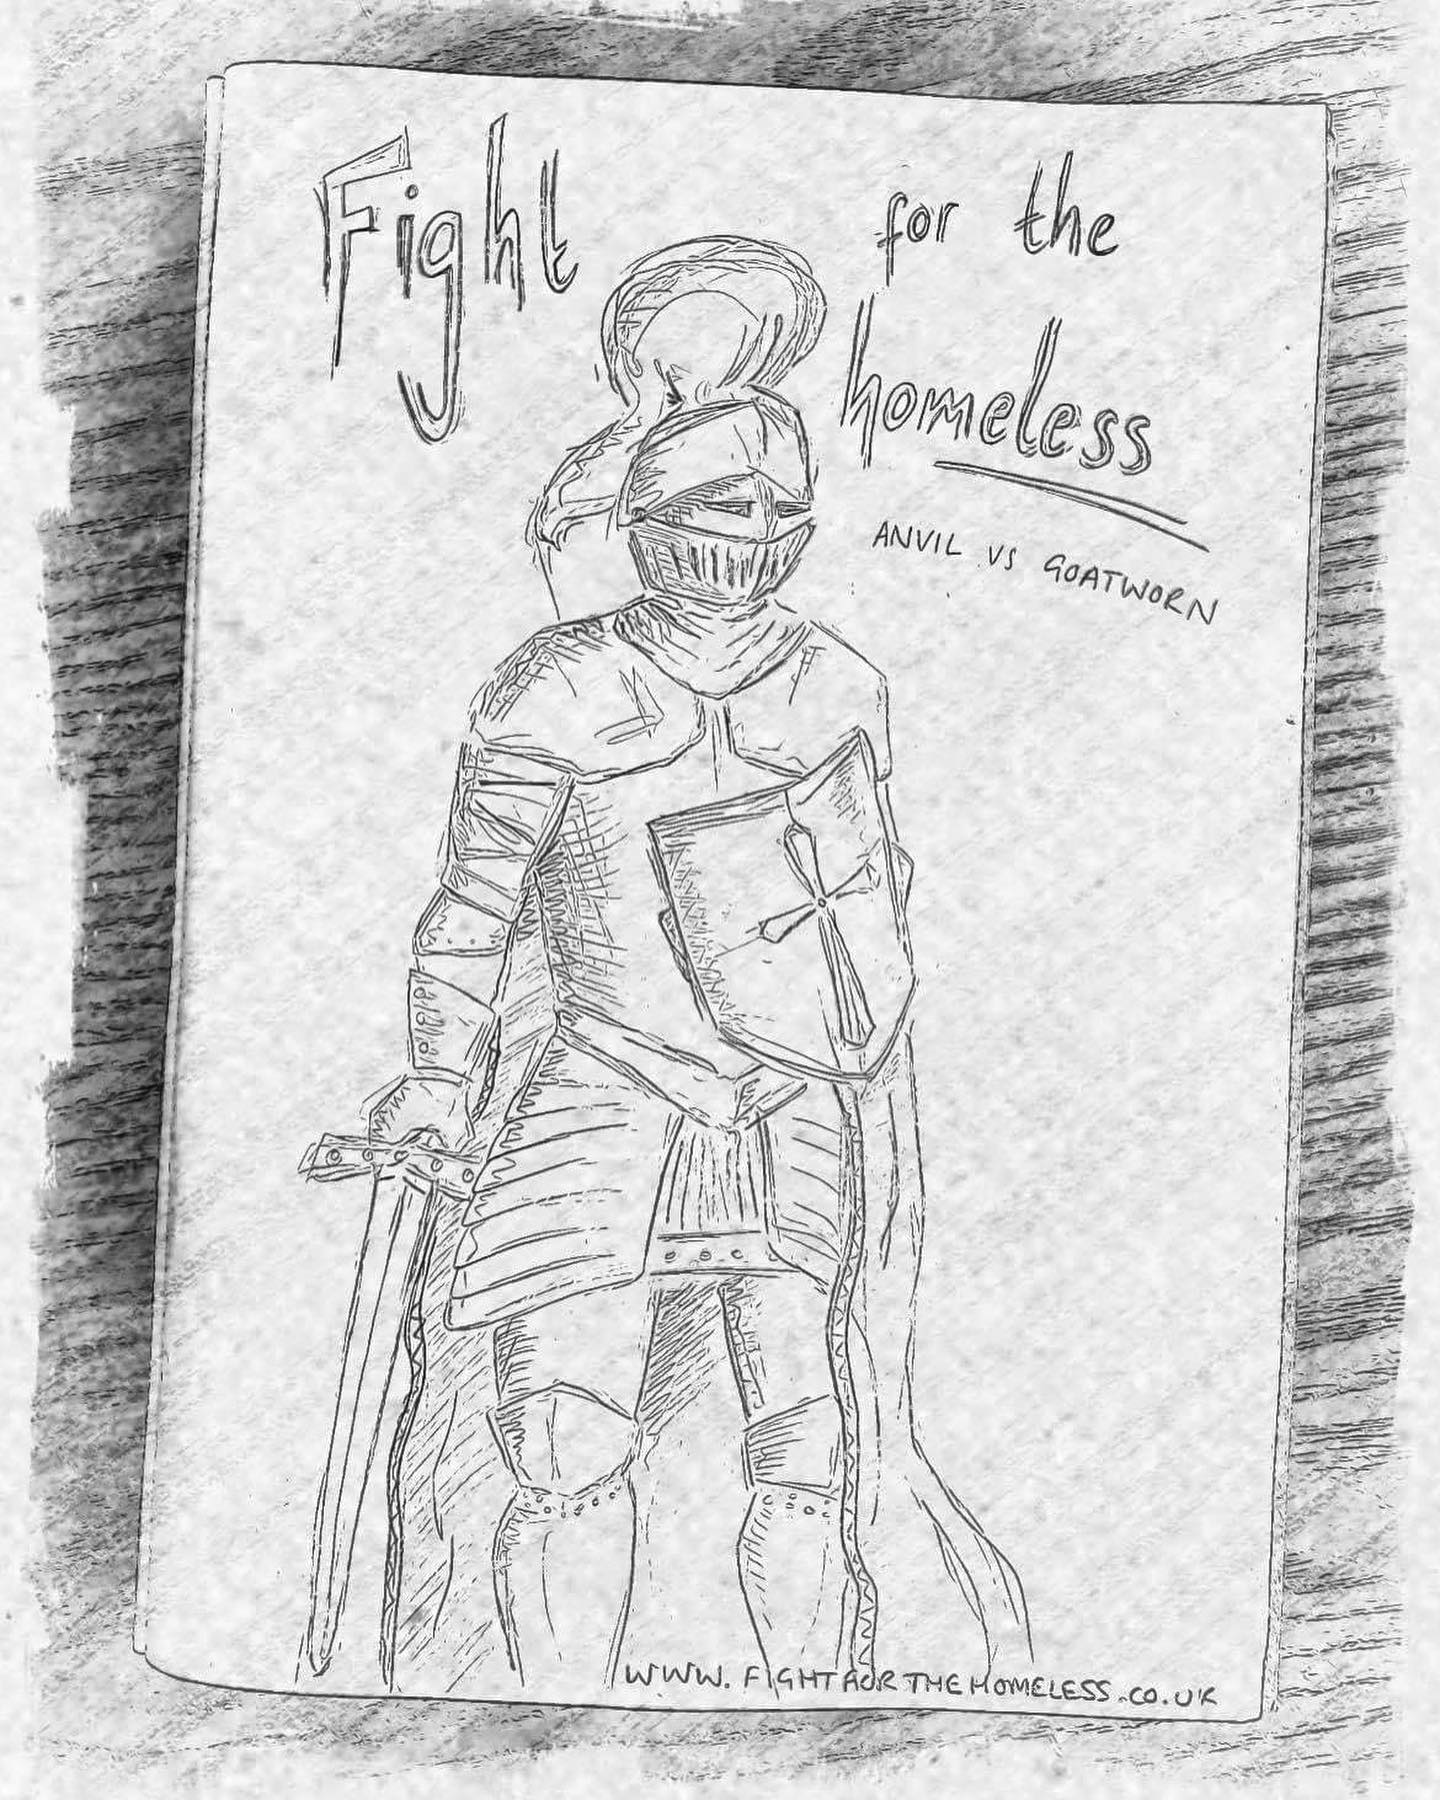 Fight for the
homeless
ANVIL VS GOATWORN
WWW.FIGHTFORTHEHOMELESS.CO.UK